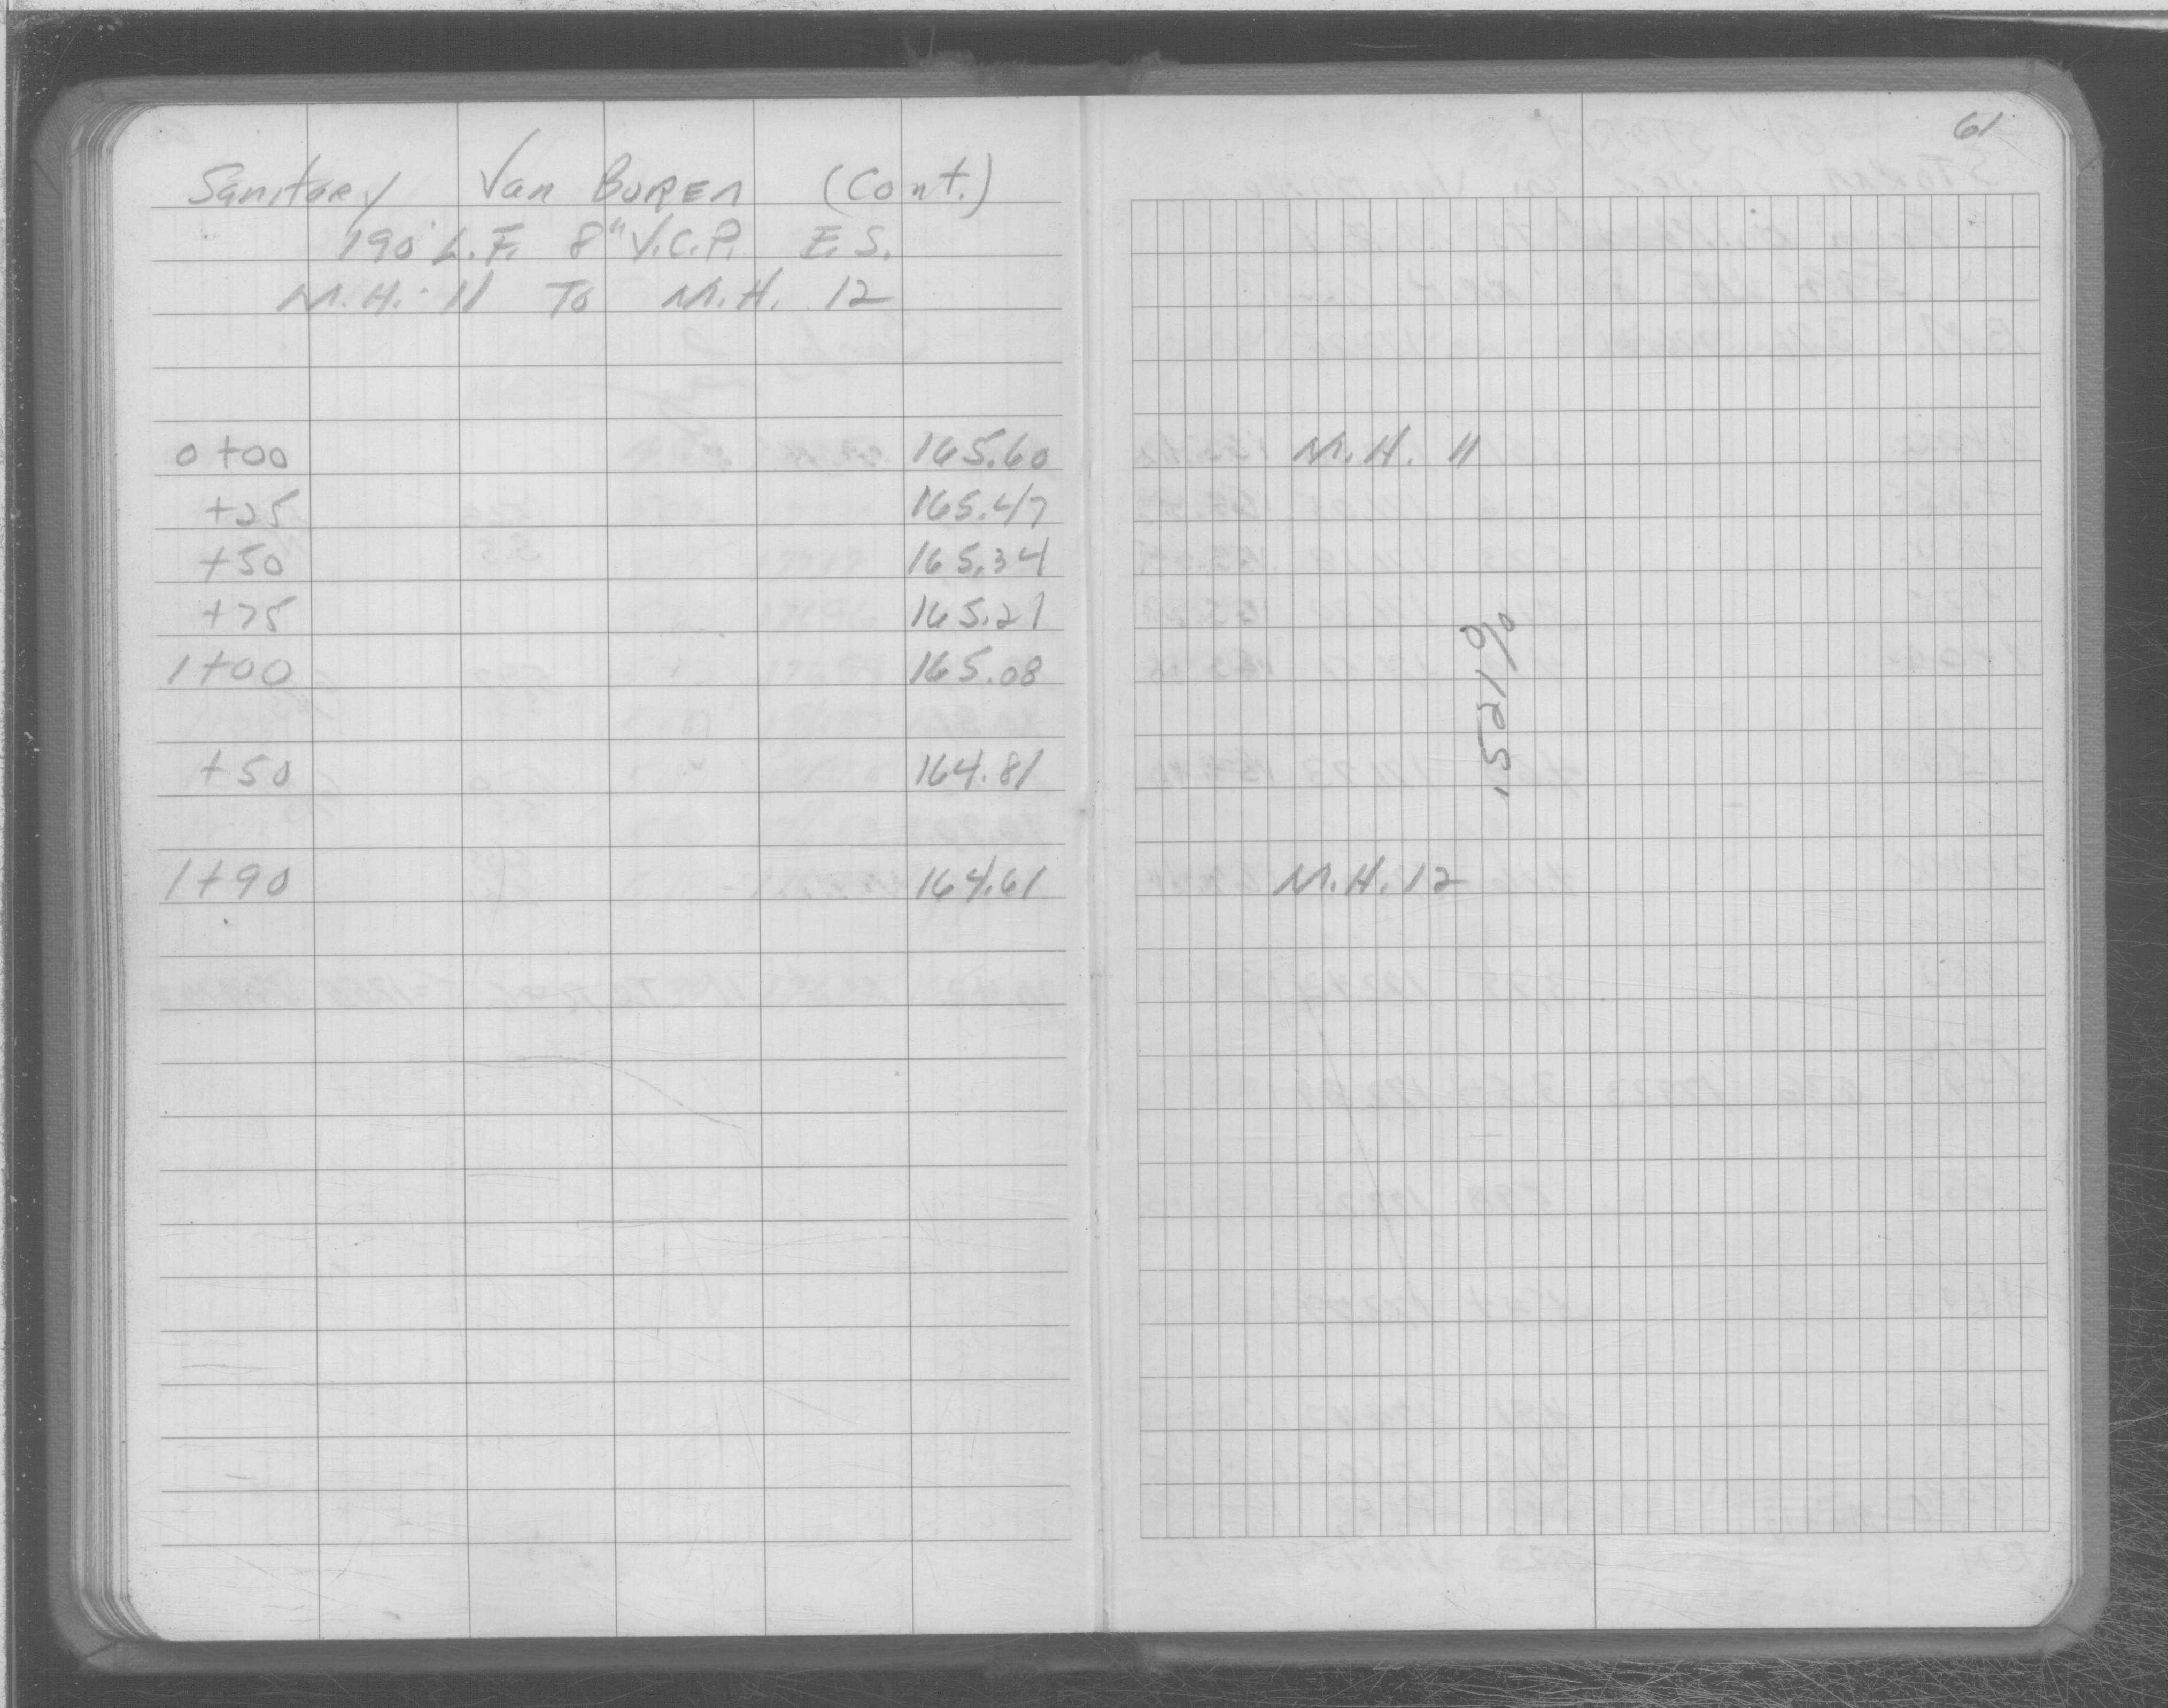 61
Sanitary Van Buren (Cont.)
190' L.F. 8" V.C.P. E.S.
M.H. 11 To M.H. 12
0+00 165.60 M.H. 11
+25 165.47
+50 165.34
+75 165.21
1+00 165.08
.521%
+50 164.81
1+90 164.61 M.H. 12